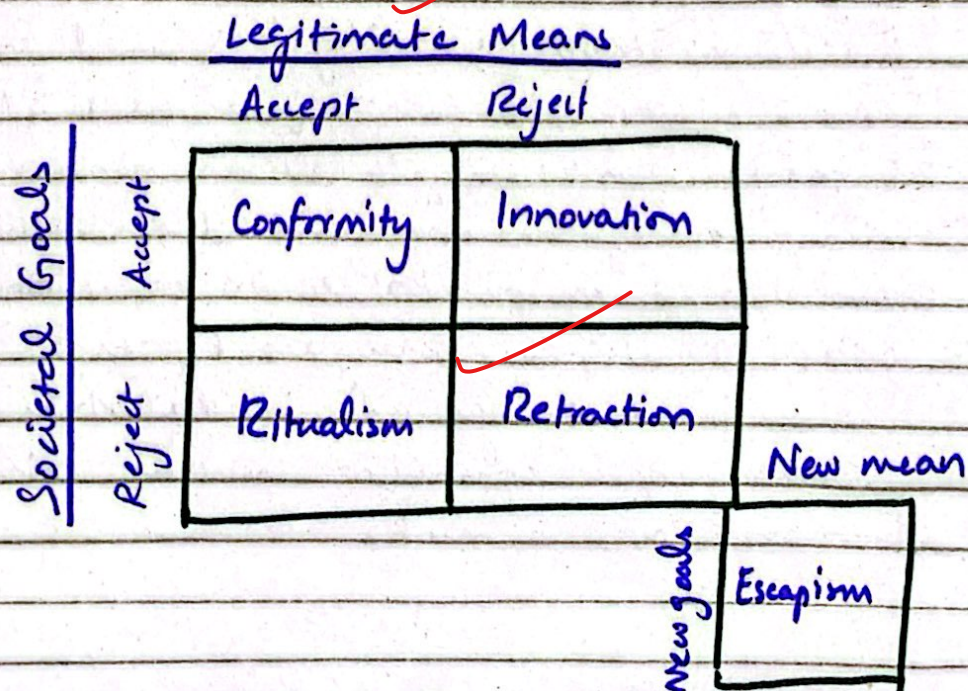 Legitimate Means
Accept Reject
Societal Goals
Accept
Conformity Innovation
Reject
Ritualism Retraction
New mean
New goals
Escapism